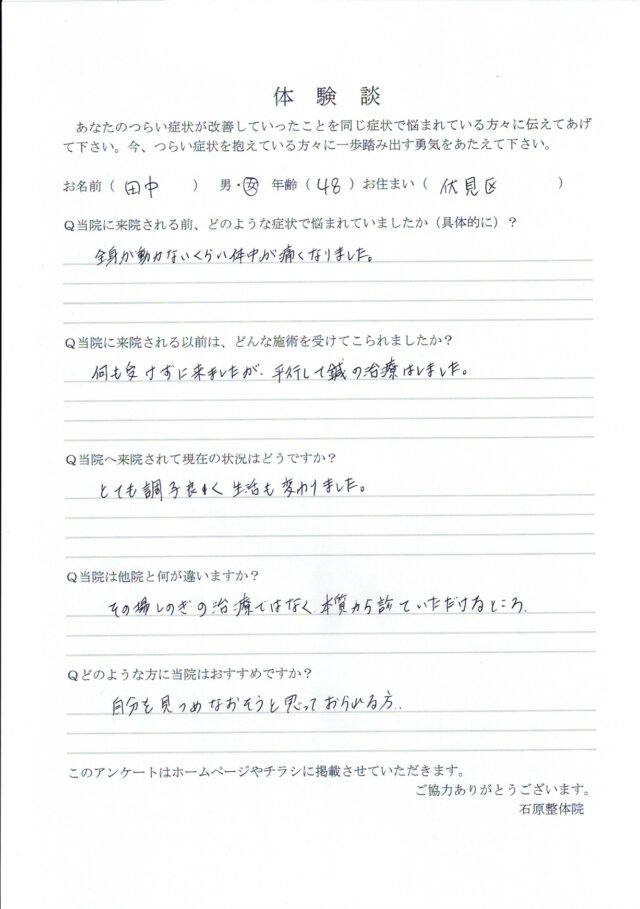 体 験 談
あなたのつらい症状が改善していったことを同じ症状で悩まれている方々に伝えてあげ
て下さい。今、つらい症状を抱えている方々に一歩踏み出す勇気をあたえて下さい。
お名前（ 田中 ） 男・女 年齢（ 48 ）お住まい（ 伏見区 ）
Q当院に来院される前、どのような症状で悩まれていましたか（具体的に）？
全身が動かないくらい体中が痛くなりました。
Q当院に来院される以前は、どんな施術を受けてこられましたか？
何も受けずに来ましたが、平行して鍼の治療はしました。
Q当院へ来院されて現在の状況はどうですか？
とても調子良く 生活も変わりました。
Q当院は他院と何が違いますか？
その場しのぎの治療ではなく 本質から診ていただけるところ。
Qどのような方に当院はおすすめですか？
自分を見つめなおそうと思っておられる方。
このアンケートはホームページやチラシに掲載させていただきます。
ご協力ありがとうございます。
石原整体院